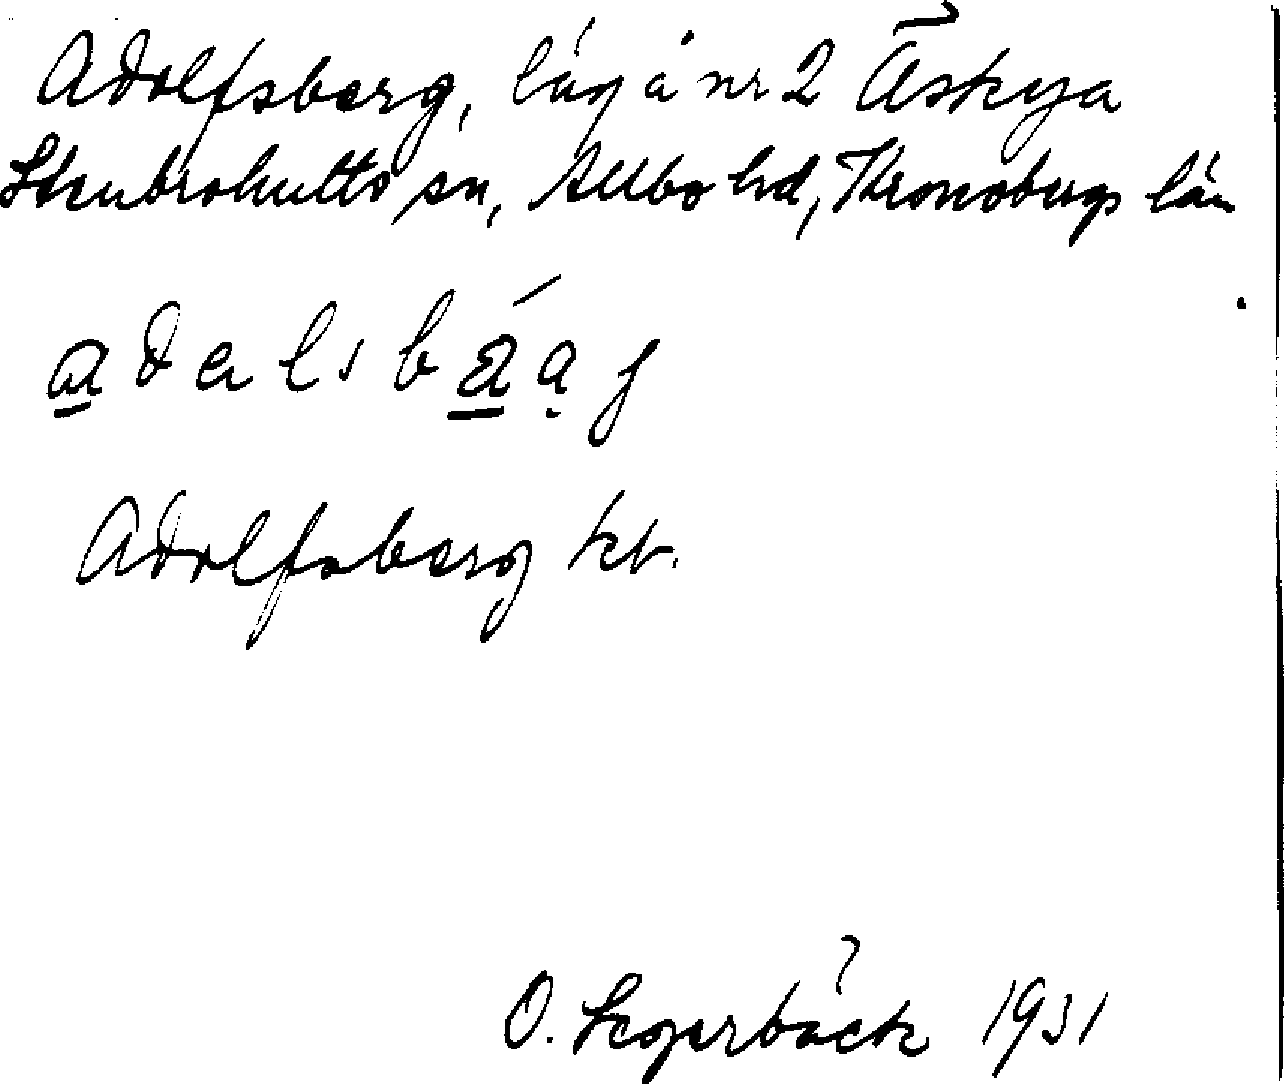 Adolfsberg, låg å nr 2 Äskya
Stenbrohults sn, Allbo hd, Kronobergs län
adalsbáaj
Adolfsberg kt.
O. Segerbäck 1931